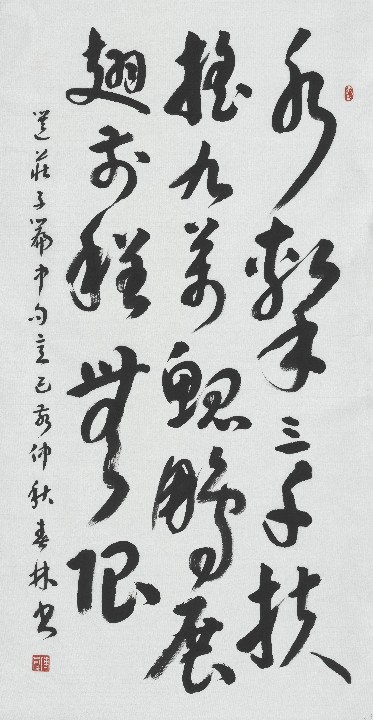 水擊三千扶
搖九萬鯤鵬展
翅前程無限
選莊子篇中句意己亥仲秋春林書